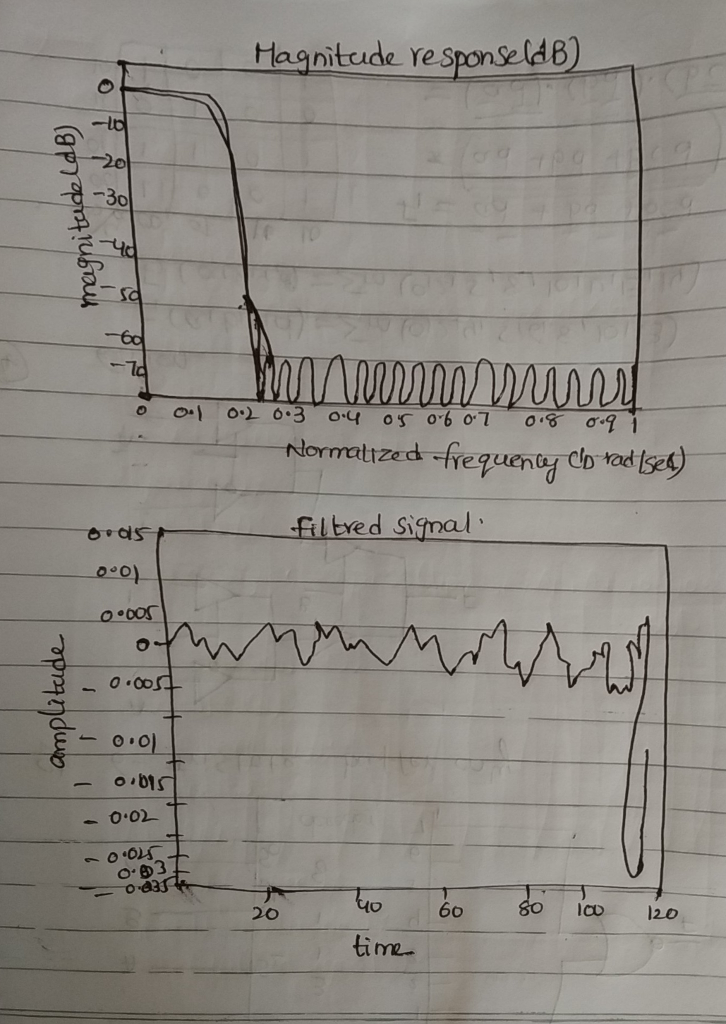 Magnitude response(dB)
magnitude(dB)
0
-10
-20
-30
-40
-50
-60
-70
0 0.1 0.2 0.3 0.4 0.5 0.6 0.7 0.8 0.9 1
Normatized frequency
filtred signal.
amplitude
0.015
0.01
0.005
0
- 0.005
- 0.01
- 0.015
- 0.02
- 0.025
0.03
- 0.035
20 40 60 80 100 120
time